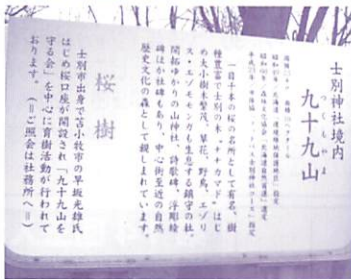 士別神社境内
九十九山
一目千本の桜の名所として有名、樹
種豊富で士別の木「ナナカマド」はじ
め大小樹木繁茂、草花、野鳥、エゾリ
ス・エゾモモンガも生息する鎮守の社。
開拓ゆかりの山神社、詩歌碑、浮彫絵
碑ほか社碑もあり、中心街至近の自然
歴史文化の森として親しまれています。
桜樹
士別市出身で苫小牧市の早坂光雄氏
はじめ桜口座が開設され「九十九山を
守る会」を中心に育樹活動が行われて
おります。(＝ご照会は社務所へ＝)